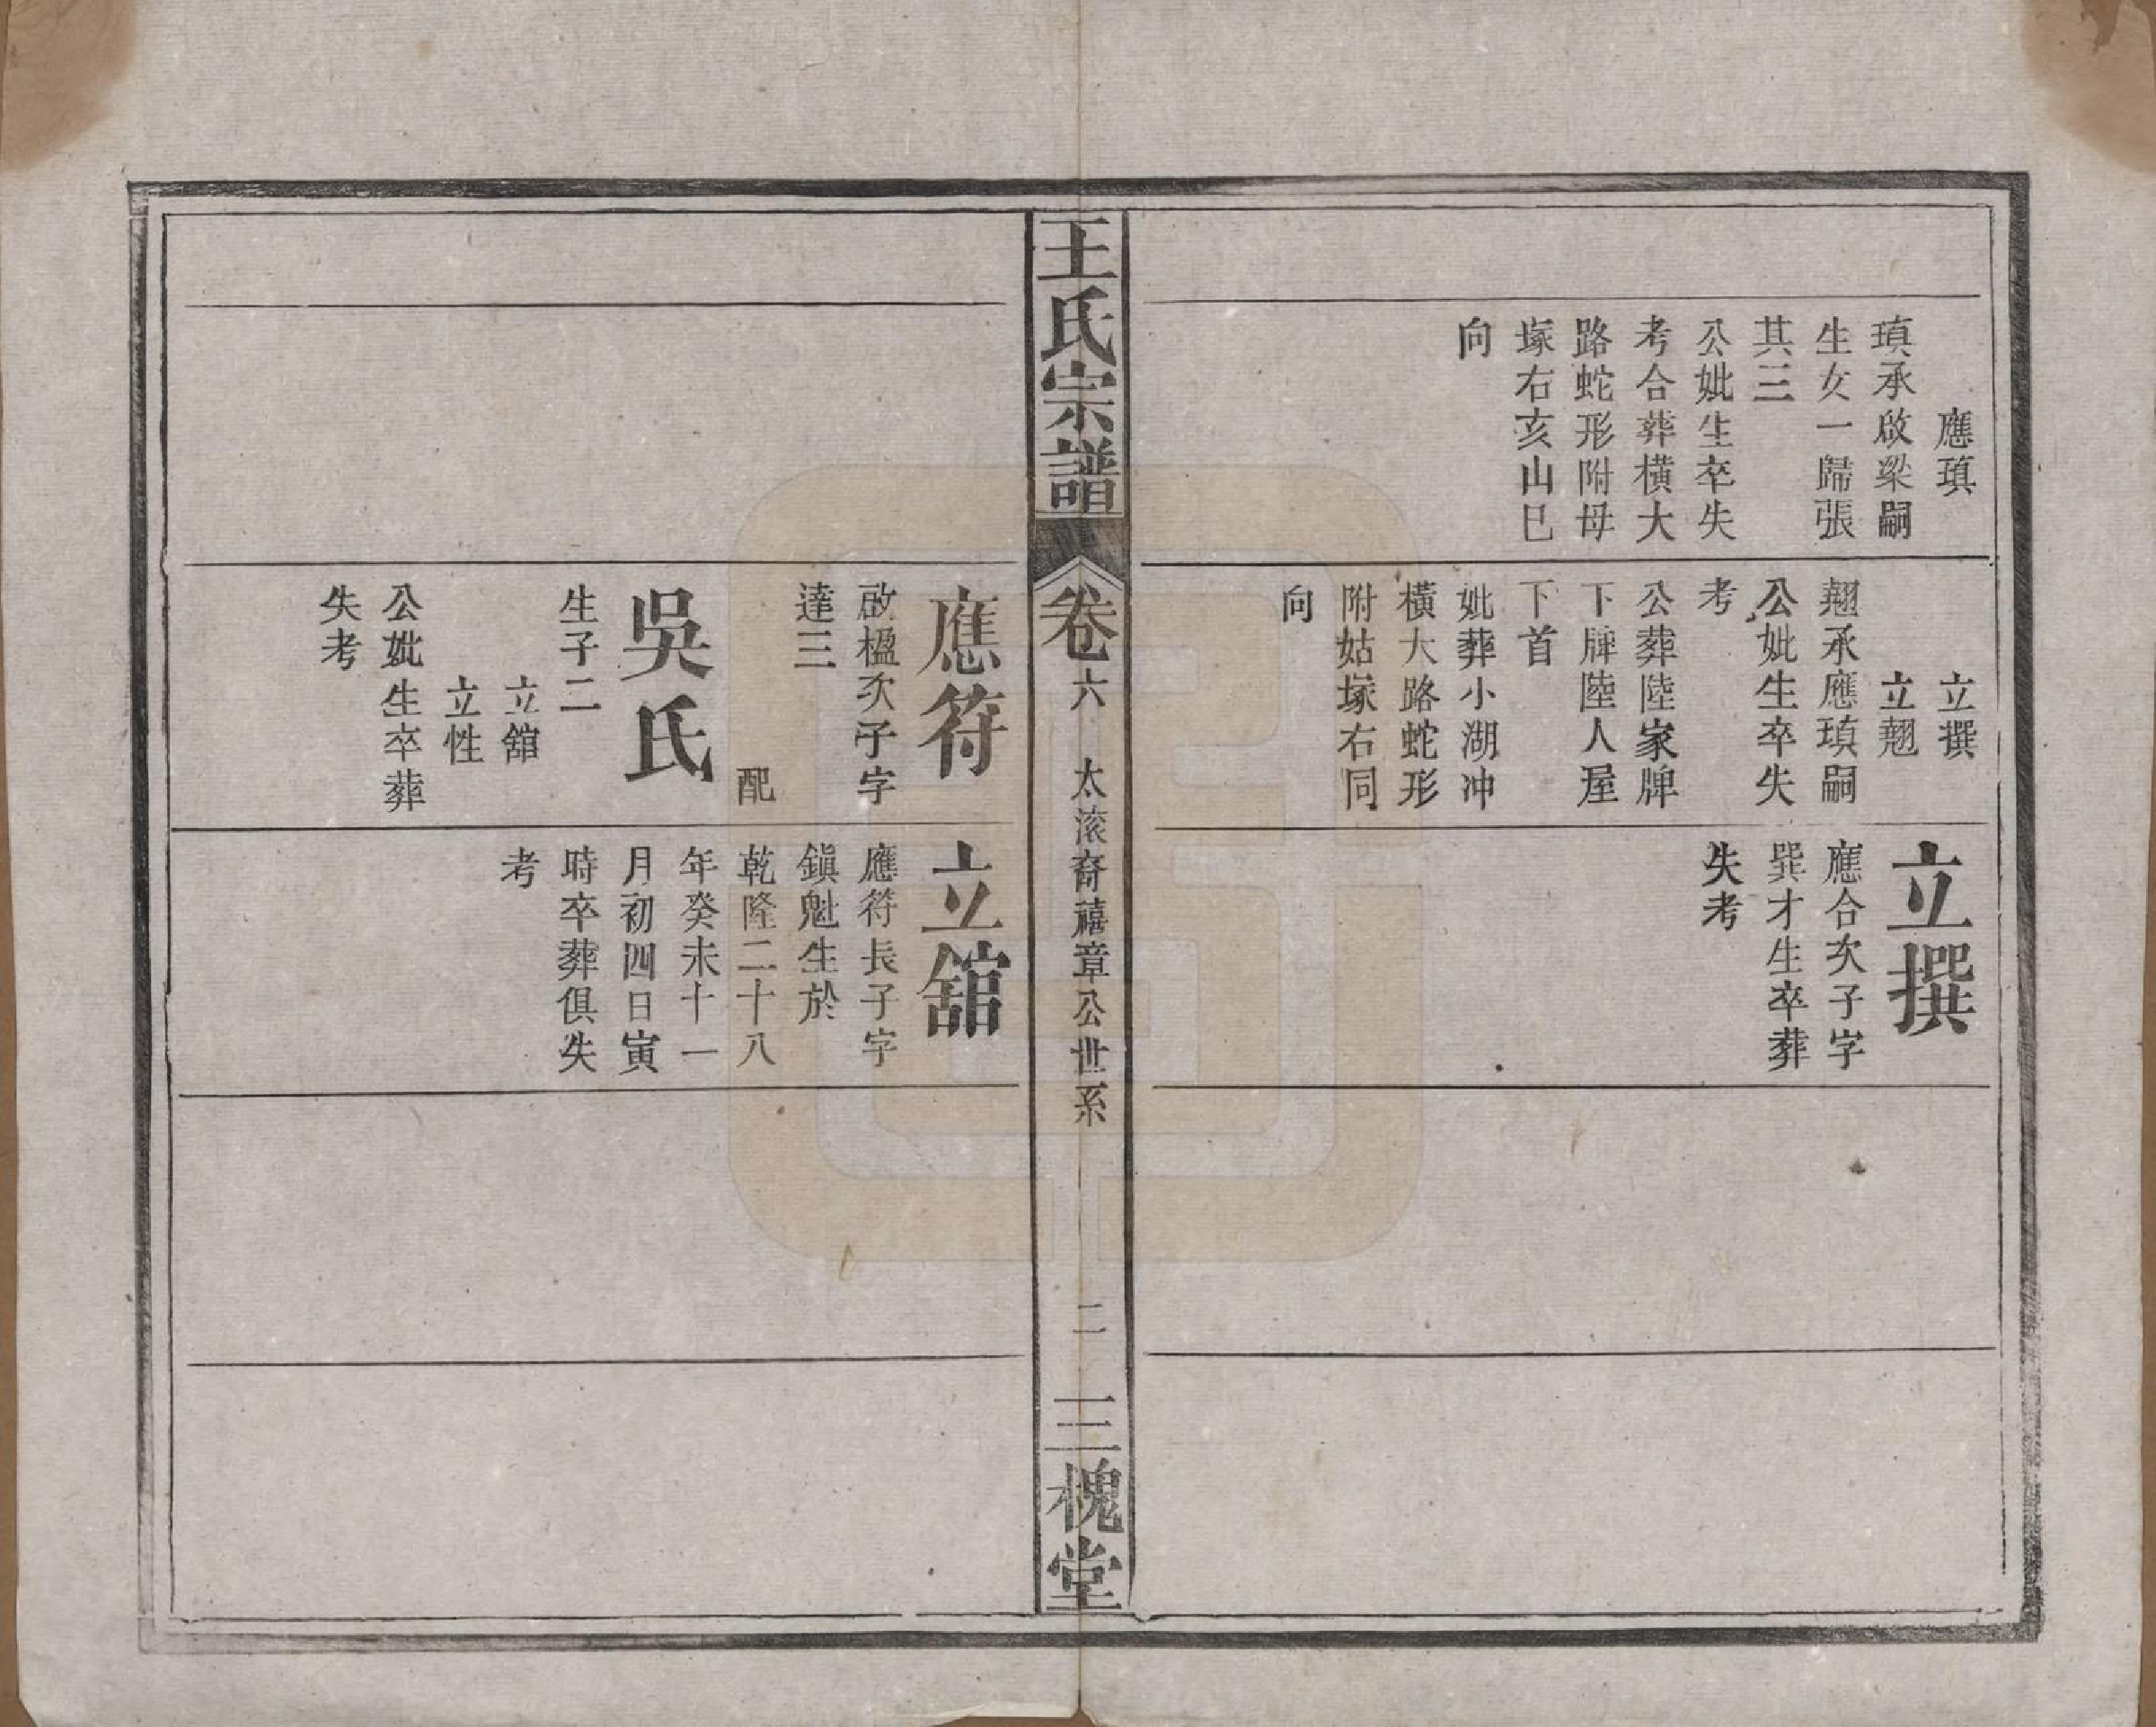 應瑱
瑱承啟梁嗣
生女一歸張
其三
公妣生卒失
考合葬橫大
路蛇形附母
塚右亥山巳
向
立撰
立翹
翹承應瑱嗣
公妣生卒失
考
公葬陸家牌
下牌陸人屋
下首
妣葬小湖冲
橫大路蛇形
附姑塚右同
向
立撰
應合次子字
巽才生卒葬
失考
王氏宗譜
卷六
太滚裔禧章公世系
二
三槐堂
應符
啟楹次子字
達三
配
吳氏
生子二
立舘
立性
公妣生卒葬
失考
立舘
應符長子字
鎭魁生於
乾隆二十八
年癸未十一
月初四日寅
時卒葬俱失
考